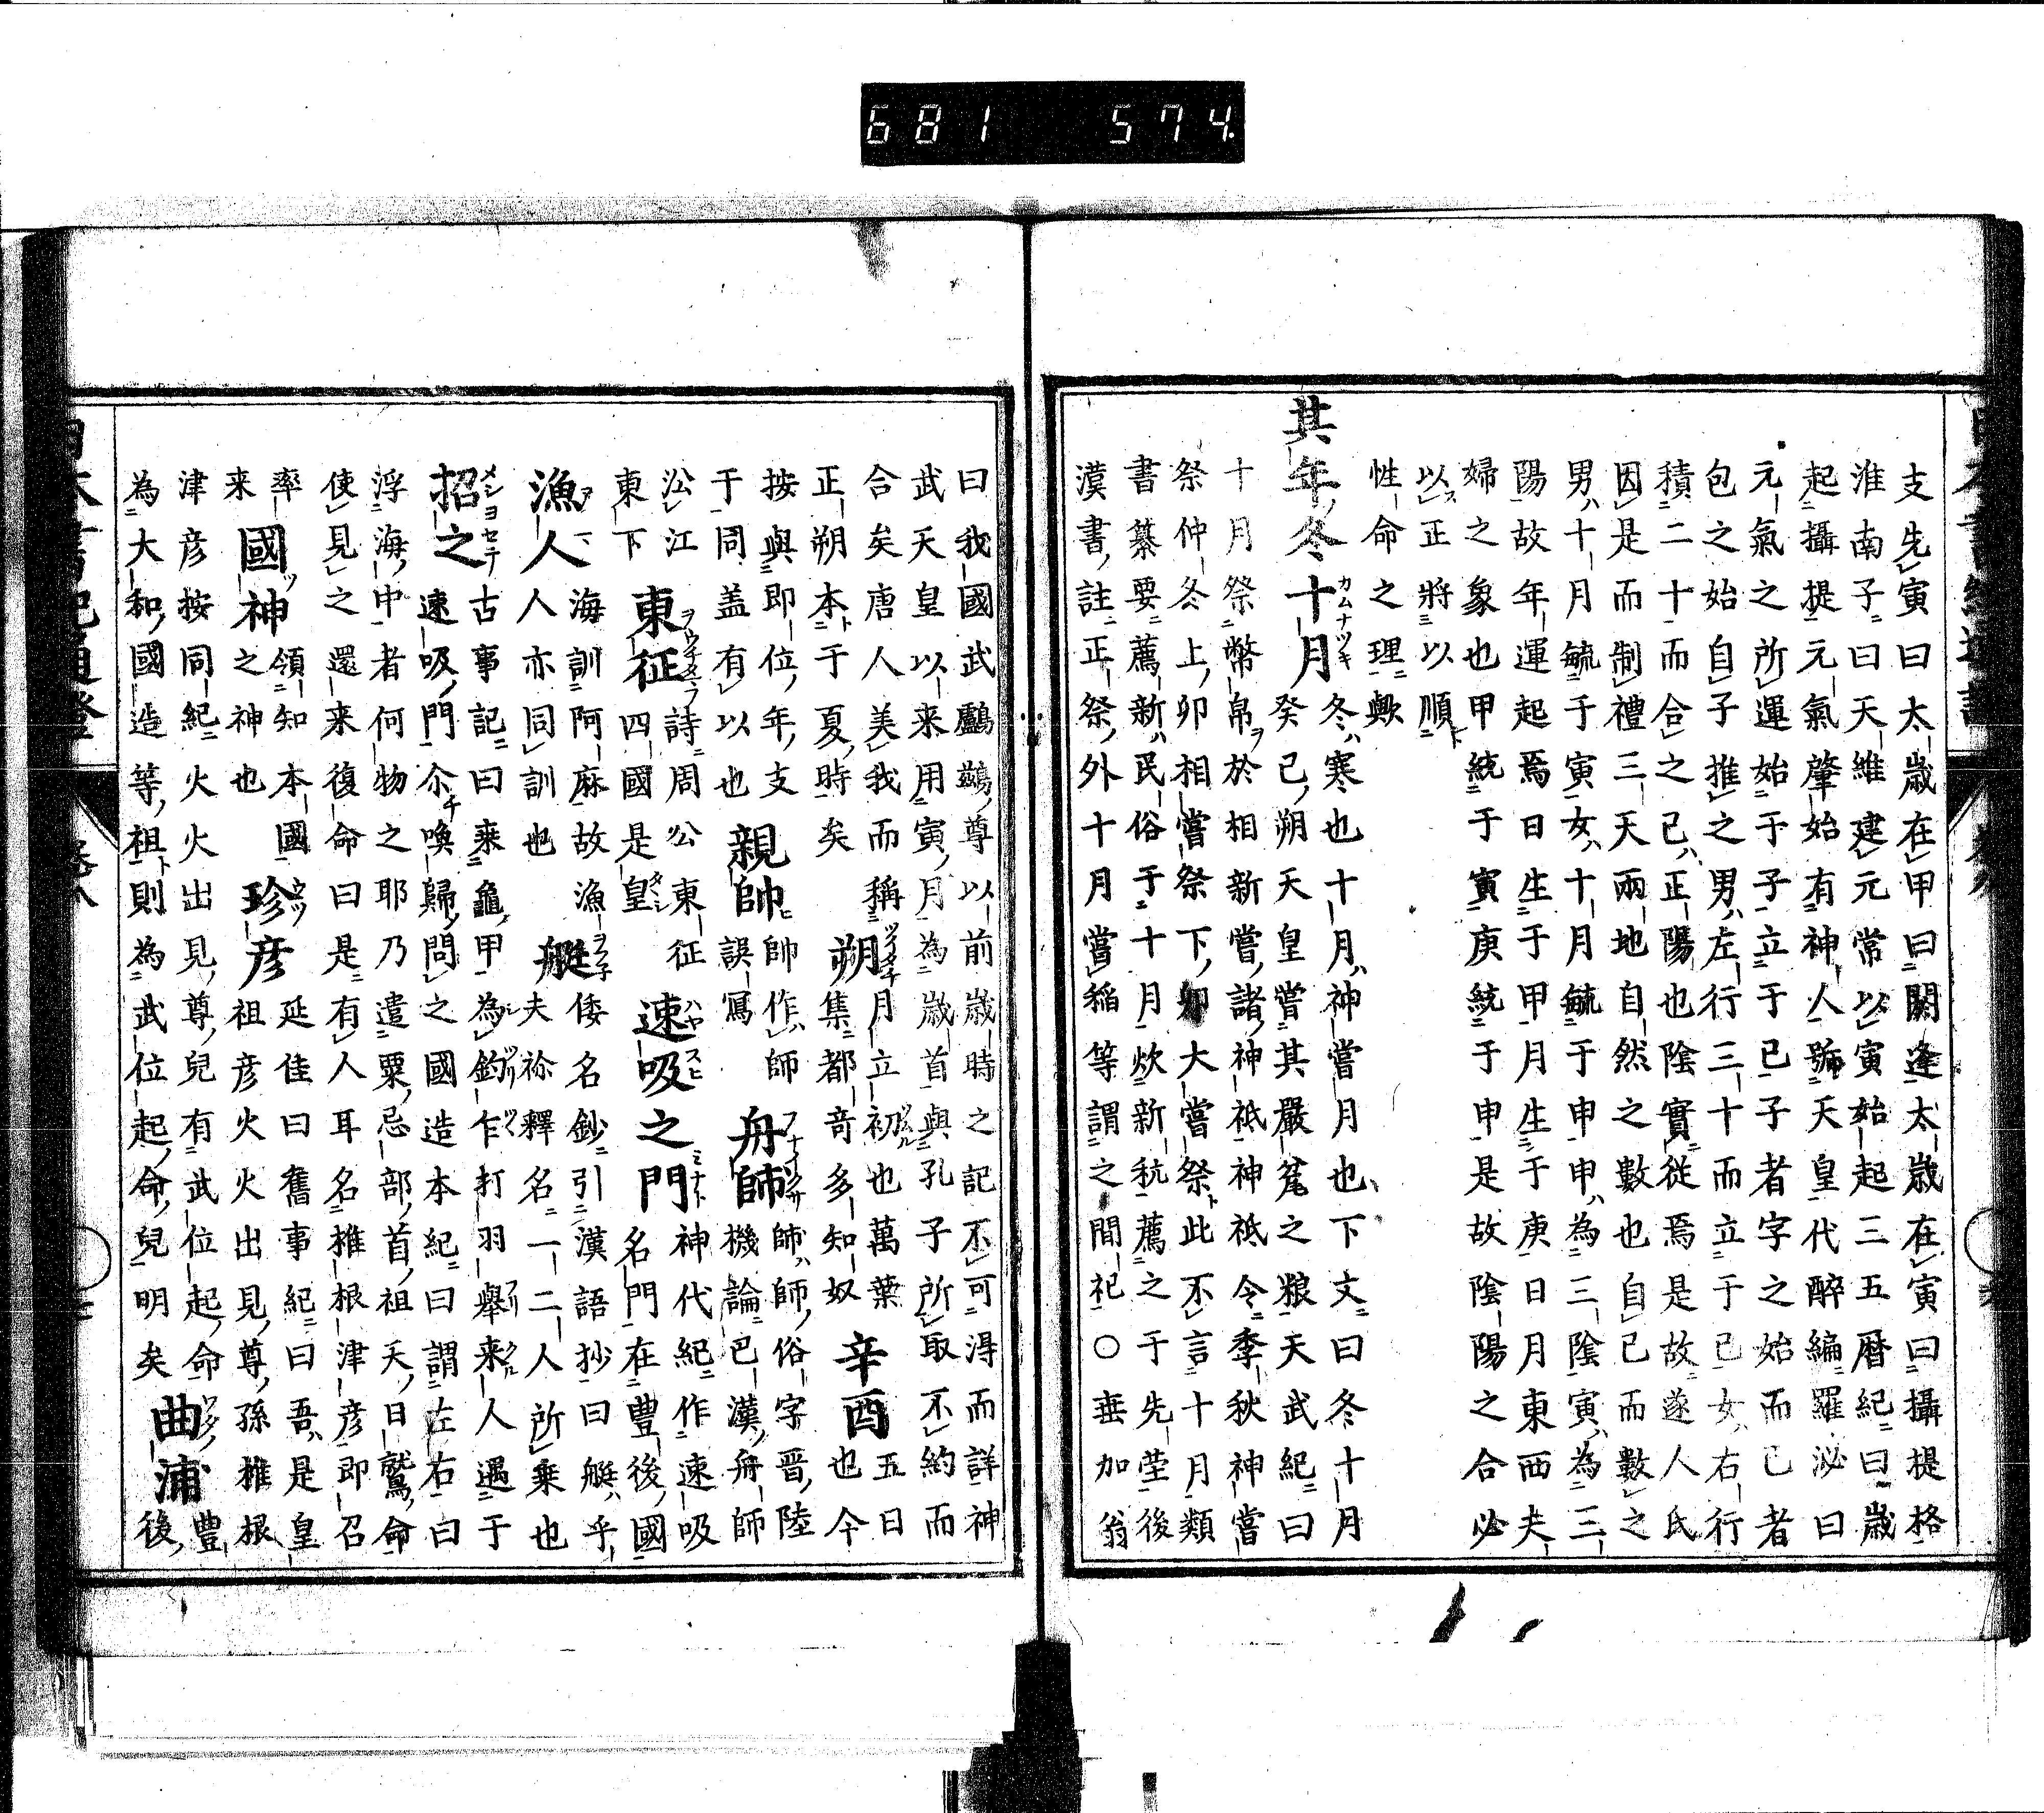 681 574.
支先寅曰太歲在甲曰閼逢太歲在寅曰攝提格
淮南子曰天維建元常以寅始起三五曆紀曰歲
起攝提元氣肇始有神人號天皇代醉編羅泌曰
元氣之所運始于子立于已子者字之始而已者
包之始自子推之男左行三十而立于已女右行
積二十而合之已正陽也陰實從焉是故遂人氏
因是而制禮三天兩地自然之數也自已而數之
男十月毓于寅女十月毓于申申為三陰寅為三
陽故年運起焉日生于甲月生于庚日月東西夫
婦之象也甲統于寅庚統于申是故陰陽之合必
以正將以順
性命之理歟
其年冬十月冬寒也十月神嘗月也下文曰冬十月
カムナツキ
癸已朔天皇嘗其嚴瓮之粮天武紀曰
十月祭幣帛於相新嘗諸神祇神祇令季秋神嘗
祭仲冬上卯相嘗祭下卯大嘗祭此不言十月類
書纂要薦新民俗于十月炊新秔薦之于先塋後
漢書註正祭外十月嘗稲等謂之間祀〇垂加翁
曰我國武鸕鷀尊以前歲時之記不可得而詳神
武天皇以来用寅月為歲首與孔子所取不約而
合矣唐人美我而稱
正朔本于夏時矣
朔月立初也萬葉
ツイタチ
集都奇多知奴
辛酉五日
也今
按與即位年支
于同盖有以也
親帥帥作師
誤寫
舟師師師俗字晋陸
フナイクサ
機論巴漢舟師
㳂江
東下
東征詩周公東征
四國是皇
速吸之門神代紀作速吸
ハヤスヒ
ミナト
名門在豊後國
漁人海訓阿麻故漁
人亦同訓也
艇倭名鈔引漢語抄曰艇乎
夫祢釋名一二人所乗也
招之古事記曰乗龜甲為釣乍打羽舉来人遇于
メシヨセテ
速吸門尒喚歸問之國造本紀曰謂左右曰
浮海中者何物之耶乃遣粟忌部首祖天日鷲命
使見之還来復命曰是有人耳名椎根津彦即召
率
来
國神領知本國
之神也
珍彦延佳曰舊事紀曰吾是皇
ウヅ
祖彦火火出見尊孫椎根
津彦按同紀火火出見尊兒有武位起命
為大和國造等祖則為武位起命兒明矣
曲浦豊
後